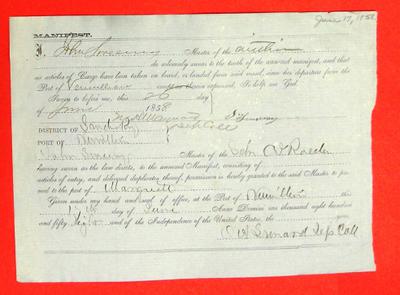 June 17, 1858
MANIFEST.
I, John Sweeney Master of the
do solemnly swear to the truth of the annexed manifest, and that no
articles of Cargo have been taken on board, or landed from said vessel, since her departure from the
Port of Vermillion excepted. So help me God.
Sworn to before me, this 26 day
of June 1858
DISTRICT OF Sandusky
PORT OF Vermillion
John Sweeney Master of the John
having sworn as the law directs, to the annexed Manifest, consisting of
articles of entry, and delivered duplicates thereof, permission is hereby granted to the said Master to pro-
ceed to the port of Marquett
Given under my hand and seal of office, at the Port of Vermillion this
17th day of June Anno Domini one thousand eight hundred
and fifty Eight and of the Independence of the United States, the year.
Dep Coll